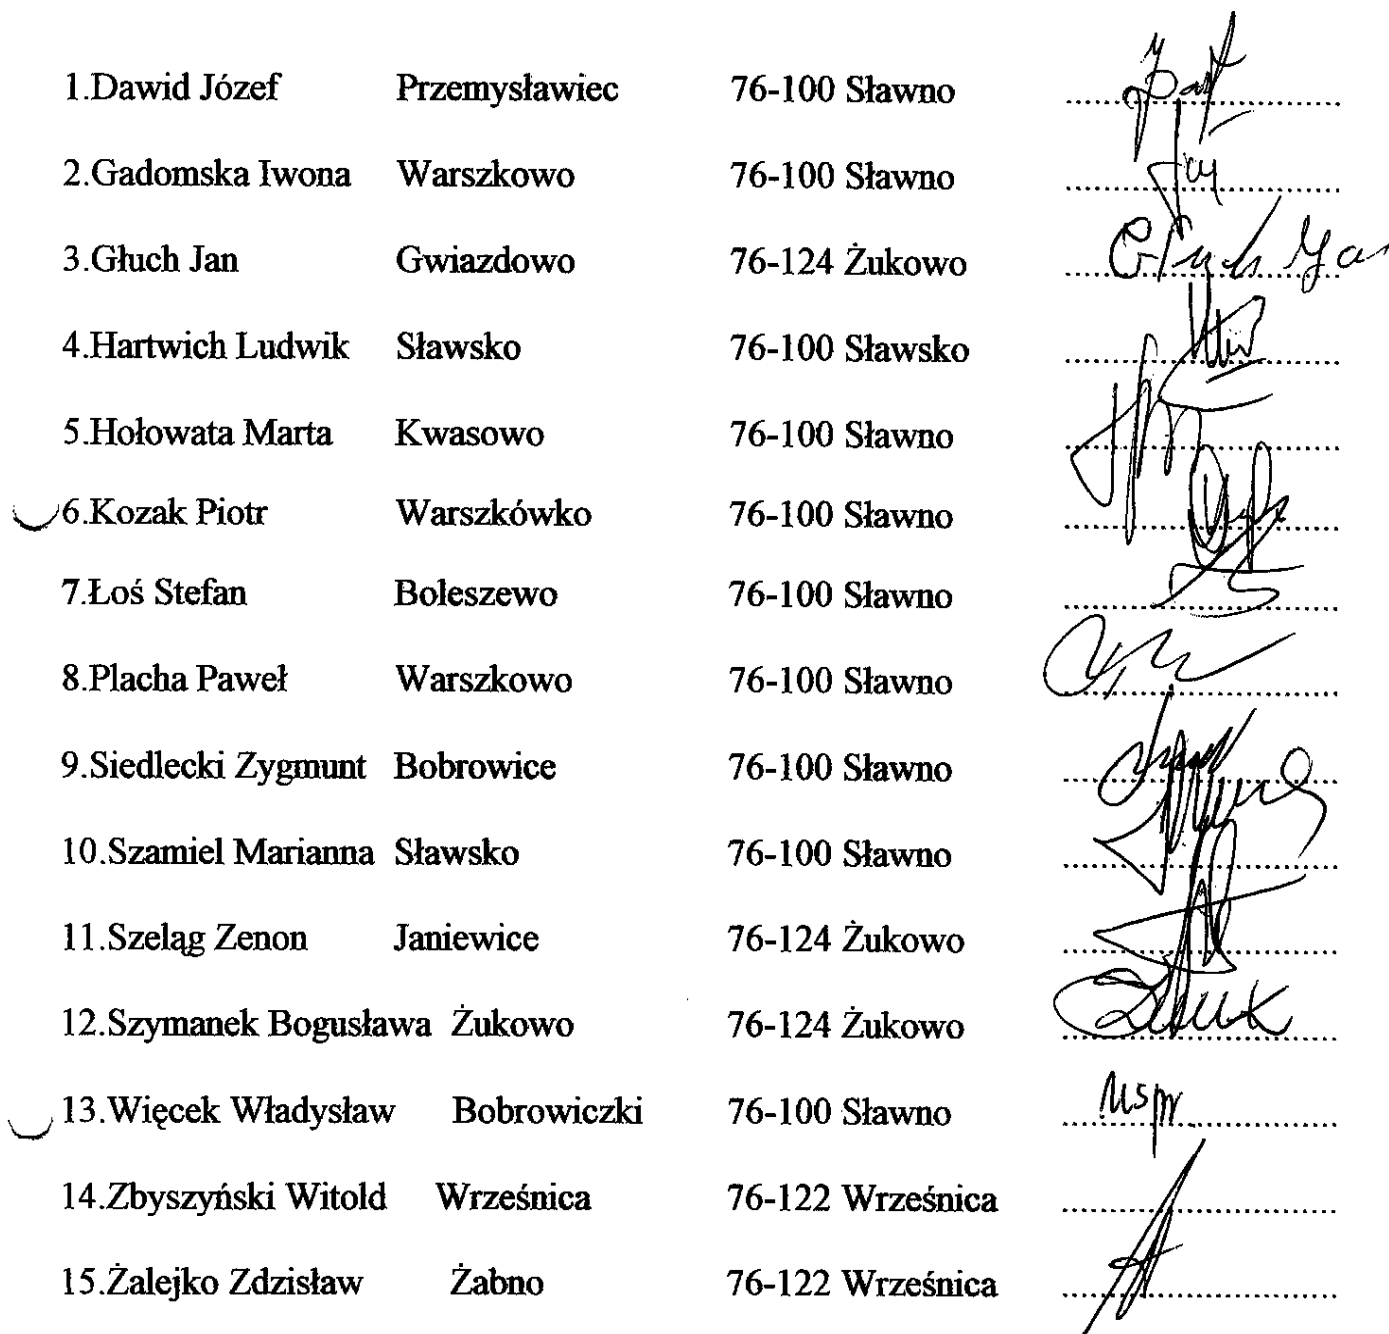 1.Dawid Józef Przemysławiec 76-100 Sławno
2.Gadomska Iwona Warszkowo 76-100 Sławno
3.Głuch Jan Gwiazdowo 76-124 Żukowo Głuch Jan
4.Hartwich Ludwik Sławsko 76-100 Sławsko
5.Hołowata Marta Kwasowo 76-100 Sławno
6.Kozak Piotr Warszkówko 76-100 Sławno
7.Łoś Stefan Boleszewo 76-100 Sławno
8.Placha Paweł Warszkowo 76-100 Sławno
9.Siedlecki Zygmunt Bobrowice 76-100 Sławno
10.Szamiel Marianna Sławsko 76-100 Sławno
11.Szeląg Zenon Janiewice 76-124 Żukowo
12.Szymanek Bogusława Żukowo 76-124 Żukowo
13.Więcek Władysław Bobrowiczki 76-100 Sławno uspr.
14.Zbyszyński Witold Wrześnica 76-122 Wrześnica
15.Żalejko Zdzisław Żabno 76-122 Wrześnica